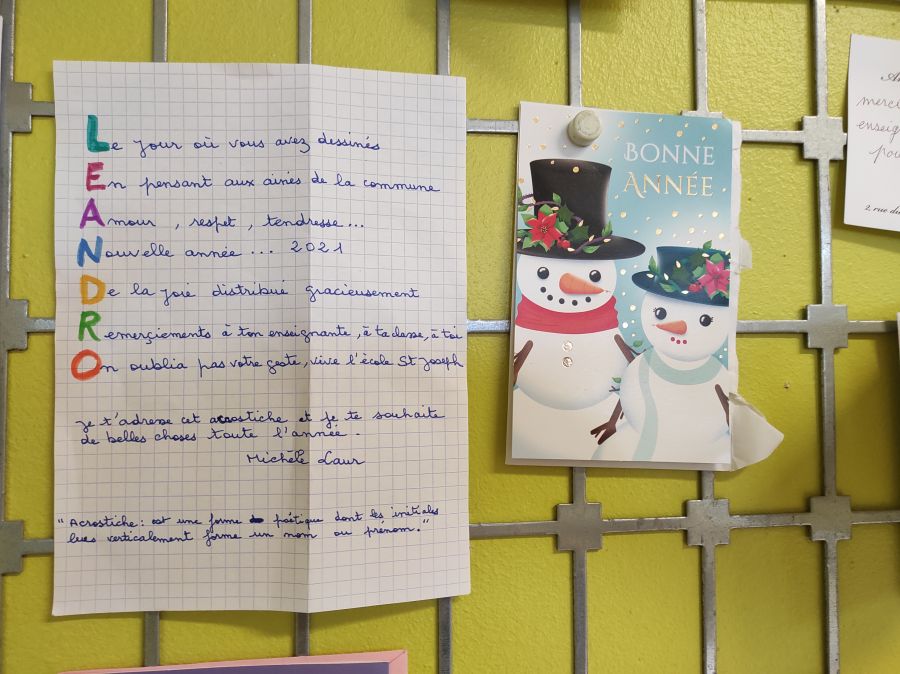 Le jour où vous avez dessinés
En pensant aux ainés de la commune
Amour, respet, tendresse...
Nouvelle année... 2021
De la joie distribué gracieusement
Remerçiements à ton enseignante, à ta classe, à toi
On oublia pas votre geste, vive l'école St Joseph
je t'adresse cet acrostiche et je te souhaite
de belles choses toute l'année.
Michèle Laur
"Acrostiche: est une forme poétique dont les initiales
lues verticalement forme un nom ou prénom."
BONNE
ANNÉE
merci
enseig
pou
2, rue du